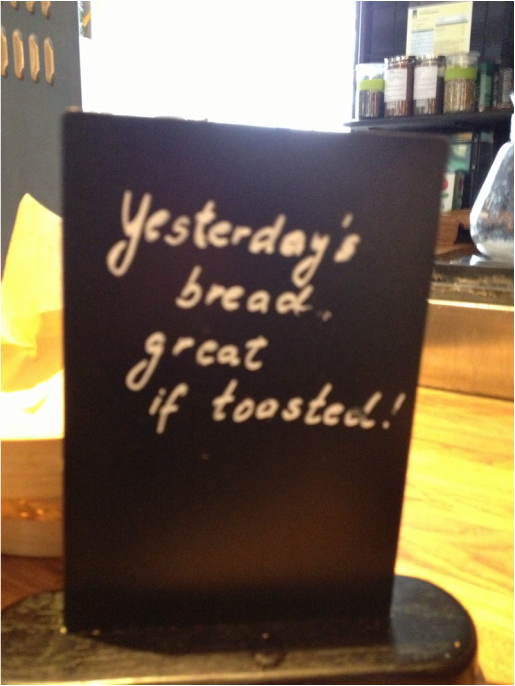 Yesterday's
bread..
great
if toasted!